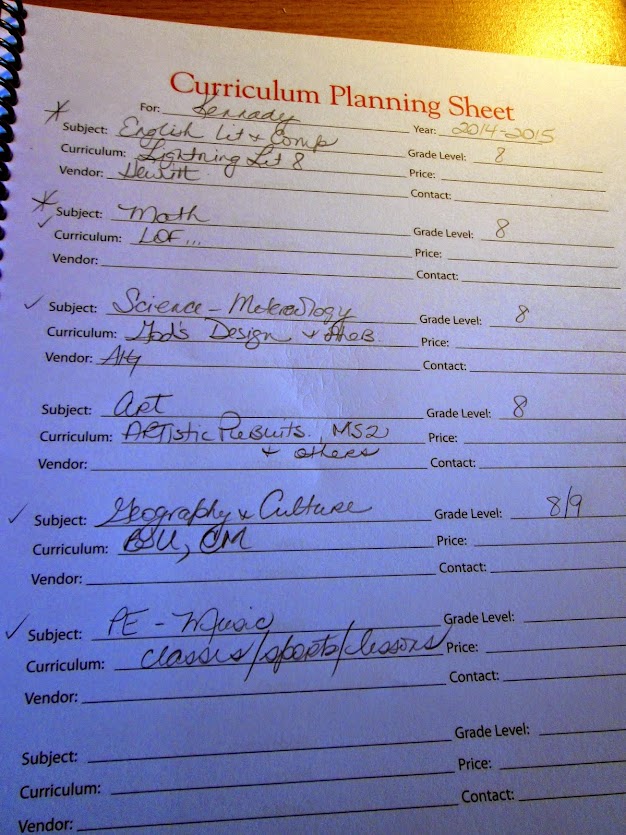 Curriculum Planning Sheet
For: Kennady Year: 2014-2015
Subject: English Lit + Comp Grade Level: 8
Curriculum: Lightning Lit 8 Price:
Vendor: Hewitt Contact:
Subject: Math Grade Level: 8
Curriculum: LOF... Price:
Vendor: Contact:
Subject: Science - Metereology Grade Level: 8
Curriculum: God's Design + Price:
Vendor: Contact:
Subject: Art Grade Level: 8
Curriculum: ARTistic Pursuits, MS2 Price:
+ others
Vendor: Contact:
Subject: Geography + Culture Grade Level: 8/9
Curriculum: BSU, CM Price:
Vendor: Contact:
Subject: PE - Music Grade Level:
Curriculum: classes/sports/lessons Price:
Vendor: Contact:
Subject: Grade Level:
Curriculum: Price:
Vendor: Contact: